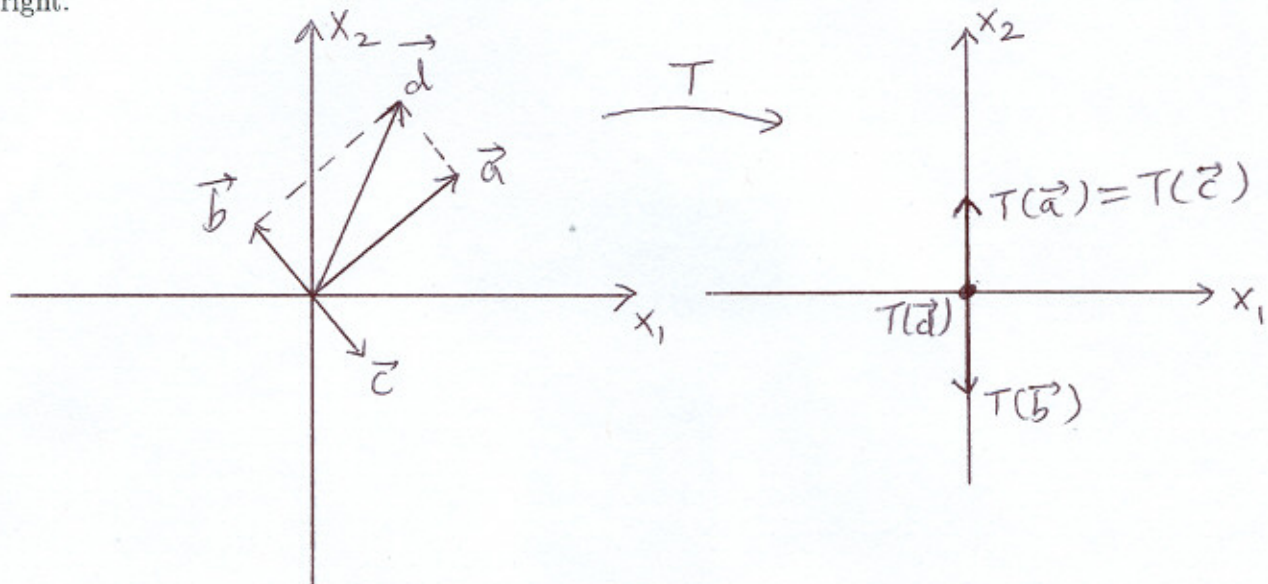 right.
X₂
d⃗
a⃗
b⃗
c⃗
X₁
T
X₂
T(a⃗) = T(c⃗)
T(d⃗)
X₁
T(b⃗)